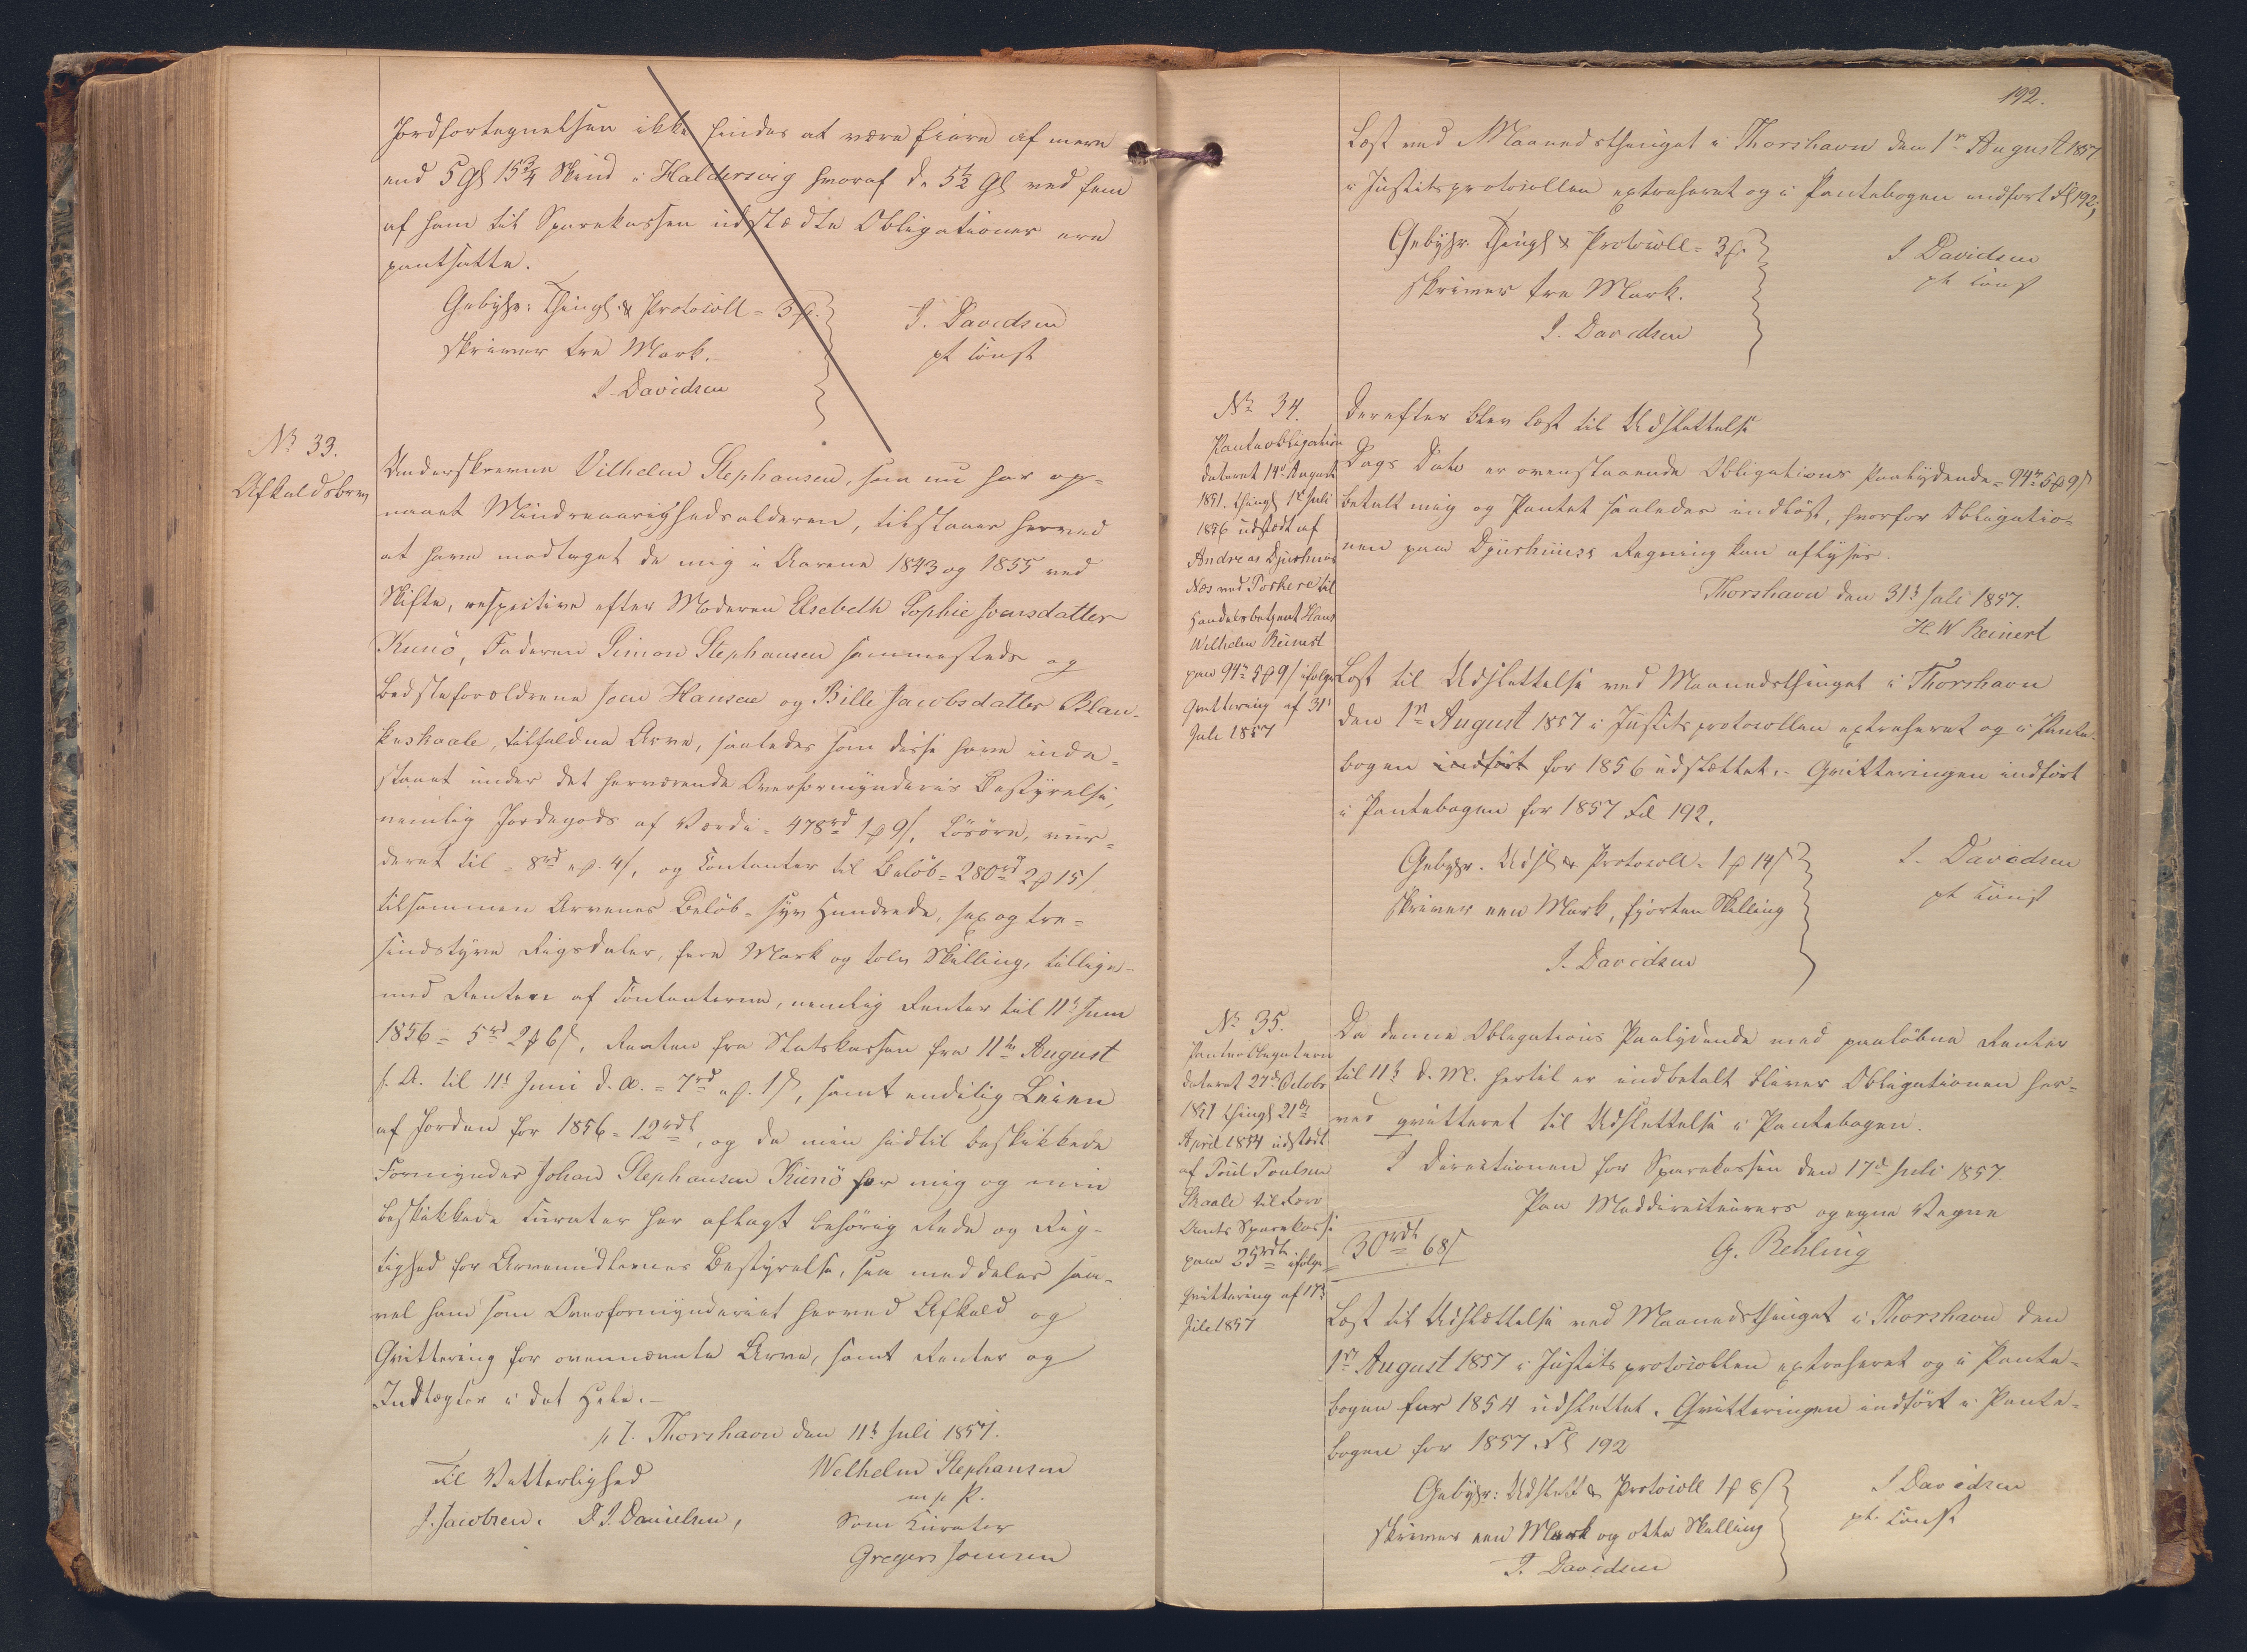 Jordfortegnelsen ikke findes at være Eiere af mere
end 5 Gl 15 3/4 Skind i Haldersvig hvoraf de 5 1/2 Gl ved fem
af ham til Sparekassen udstædte Obligationer ere
pantsatte.
Gebyhr: Thingl. & Protocoll = 3 ß.
skriver tre Mark.
J. Davidsen
J. Davidsen
pt const
No 33.
Afkaldsbrev
Underskrevne Vilhelm Stephansen, som nu har op-
naaet Mindreaarighedsalderen, tilstaaer herved
at have modtaget de mig i Aarene 1843 og 1855 ved
Skifte, respective efter Moderen Elsebeth Sophie Joensdatter
Kunö, Faderen Simon Stephansen sammesteds og
Bedsteforældrene Joen Hansen og Bille Jacobsdatter Blan-
keskaale, tilfaldne Arve, saaledes som disse have inde-
staaet under det herværende Overformynderies Bestyrelse,
nemlig Jordegods af Værdi = 478 rd 1 ß 9 s, Lösöre, vur-
deret til = 8 rd " ß. 4 s, og Contanter til Belöb = 280 rd 2 ß 15 s
tilsammen Arvenes Belöb = syv Hundrede, sex og tre-
sindstyve Rigsdaler, fere Mark og tolv Skilling, tillige-
med Renten af Contanterne, nemlig Renter til 11t Juni
1856 = 5 rd 2 ß 6 s, Renten fra Statskassen fra 11te August
f. A. til 11t Juni d. A. = 7 rd " ß. 1 s, samt endelig Leien
af Jorden for 1856 = 12 rdl, og da min hidtil beskikkede
Formynder Johan Stephansen Kunö for mig og min
beskikkede Curator har aflagt behörig Rede og Rig-
tighed for Arvemidlernes Bestyrelse, saa meddeles saa-
vel ham som Overformynderiet herved Afkald og
Qvittering for ovennævnte Arve, samt Renter og
Indtægter i det Hele.-
p. t. Thorshavn den 11t Juli 1857.
Til Vitterlighed
J. Jacobsen. D. J. Danielsen,
Welhelm Stephansen
m. p. P.
Som Curator
Gregers Joensen
192.
Læst ved Maanedsthinget i Thorshavn den 1ste August 1857
i Justitsprotocollen extraheret og i Pantebogen indfört Fol 192,
Gebyhr. Thingl & Protocoll = 3 ß.
skriver tre Mark.
J. Davidsen
J. Davidsen
pt const
No 34.
Panteobligation
dateret 14d August
1851. thingl 1st Juli
1856 udstedt af
Andreas Djurhuus
Næs ved Porkere til
Handelsbetjent Hans
Wilhelm Reinert
paa 94 rd 5 ß 9 s ifölge
Qvittering af 31t
Juli 1857
Derefter blev læst til Udslettelse
Dags Dato er ovenstaaende Obligations Paalydende = 94 rd 5 ß 9 s
betalt mig og Pantet saaledes indlöst, hvorfor Obligatio-
nen paa Djurhuuses Regning kan aflyses.
Thorshavn den 31t Juli 1857.
H. W Reinert
Læst til Udslettelse ved Maanedsthinget i Thorshavn
den 1ste August 1857 i Justitsprotocollen extraheret og i Pante-
bogen indfört for 1856 udslættet. - Qvitteringen indfört
i Pantebogen for 1857 Fol 192.
Gebyhr. Udsl & Protocoll = 1 ß 14 s
skriver een Mark, fjorten Skilling
J. Davidsen
J. Davidsen
pt const
No 35.
Panteobligation
dateret 27d Octobr
1851 thingl 21de
April 1854 udstædt
af Poul Poulsen
Skaale til Færö
Amts Sparekasse
paa 25 rdl ifölge
Qvittering af 17d
Juli 1857
Da denne Obligations Paalydende med paalöbne Renter
til 11t d. M. hertil er indbetalt bliver Obligationen her-
ved qvitteret til Udslettelse i Pantebogen.
I Directionen for Sparekassen den 17d Juli 1857.
Paa Meddirecteurers og egne Vegne
30 rdl 68 s
G. Rehling
Læst til Udslættelse ved Maanedsthinget i Thorshavn den
1ste August 1857 i Justitsprotocollen extraheret og i Pante-
bogen for 1854 udslettet. Qvitteringen indfört i Pante-
bogen for 1857 Fol 192
Gebyhr: Udslett & Protocoll 1 ß 8 s
skriver een Mark og otte Skilling
J. Davidsen
J Davidsen
pt. const